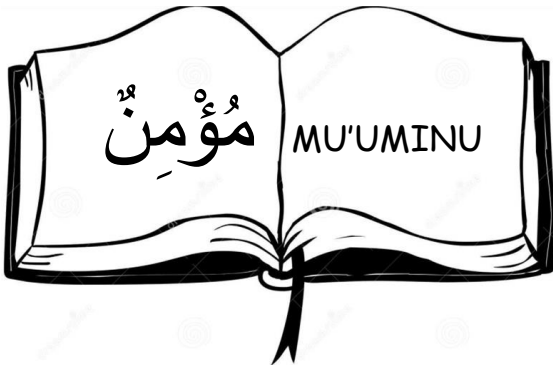 مُؤْمِنٌ
MU'UMINU